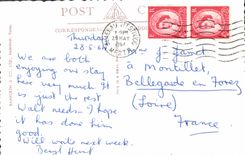 POST
CORRESPONDENCE
Thursday
28-5-64
We are both
enjoying our stay
here very much. It
is just the rest
Walt needs - I hope
it has done him
good.
Will write next week.
28 MAY
1964
à Montillet,
Bellegarde en Forez
(Loire)
France